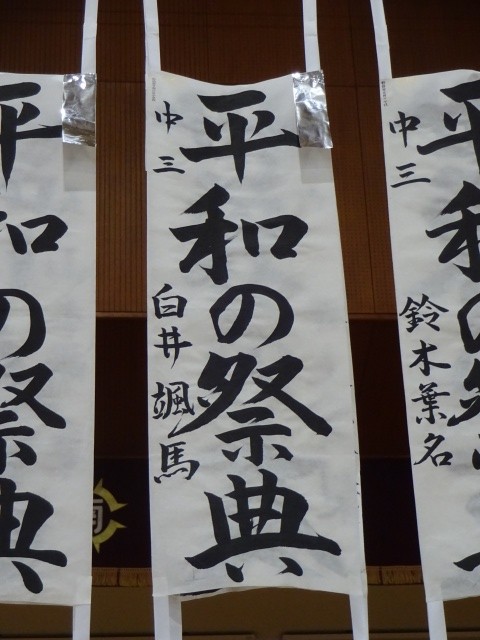 平和の祭典
中三
鈴木葉名
平和の祭典
中三
白井颯馬
平和の祭典
南